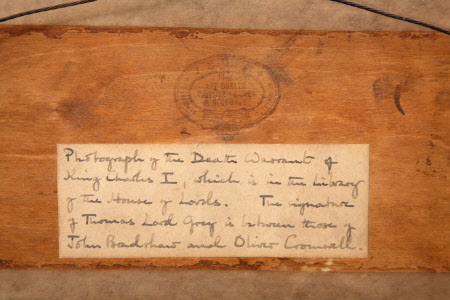 Photograph of the Death Warrant of
King Charles I, which is in the Library
of the House of Lords. The signature
of Thomas Lord Grey is between those of
John Bradshaw and Oliver Cromwell.